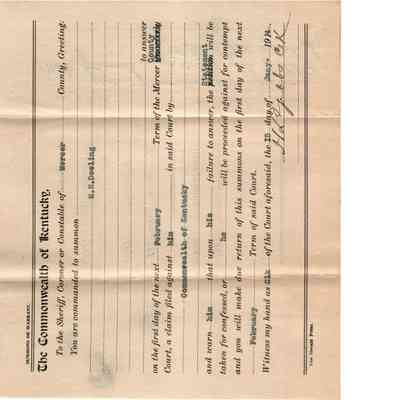 SUMMONS OR WARRANT.
The Commonwealth of Kentucky,
To the Sheriff, Coroner or Constable of Mercer County, Greeting:
You are commanded to summon
to answer
County
on the first day of the next February Term of the Mercer
Court, a claim filed against him in said Court by
Commonwealth of Kentucky
Statement
and warn him that upon his failure to answer, the petition will be
taken for confessed, or he will be proceeded against for contempt
and you will make due return of this summons on the first day of the next
February Term of said Court.
Witness my hand as Clk of the Court aforesaid, the 15 day of Jany. 191